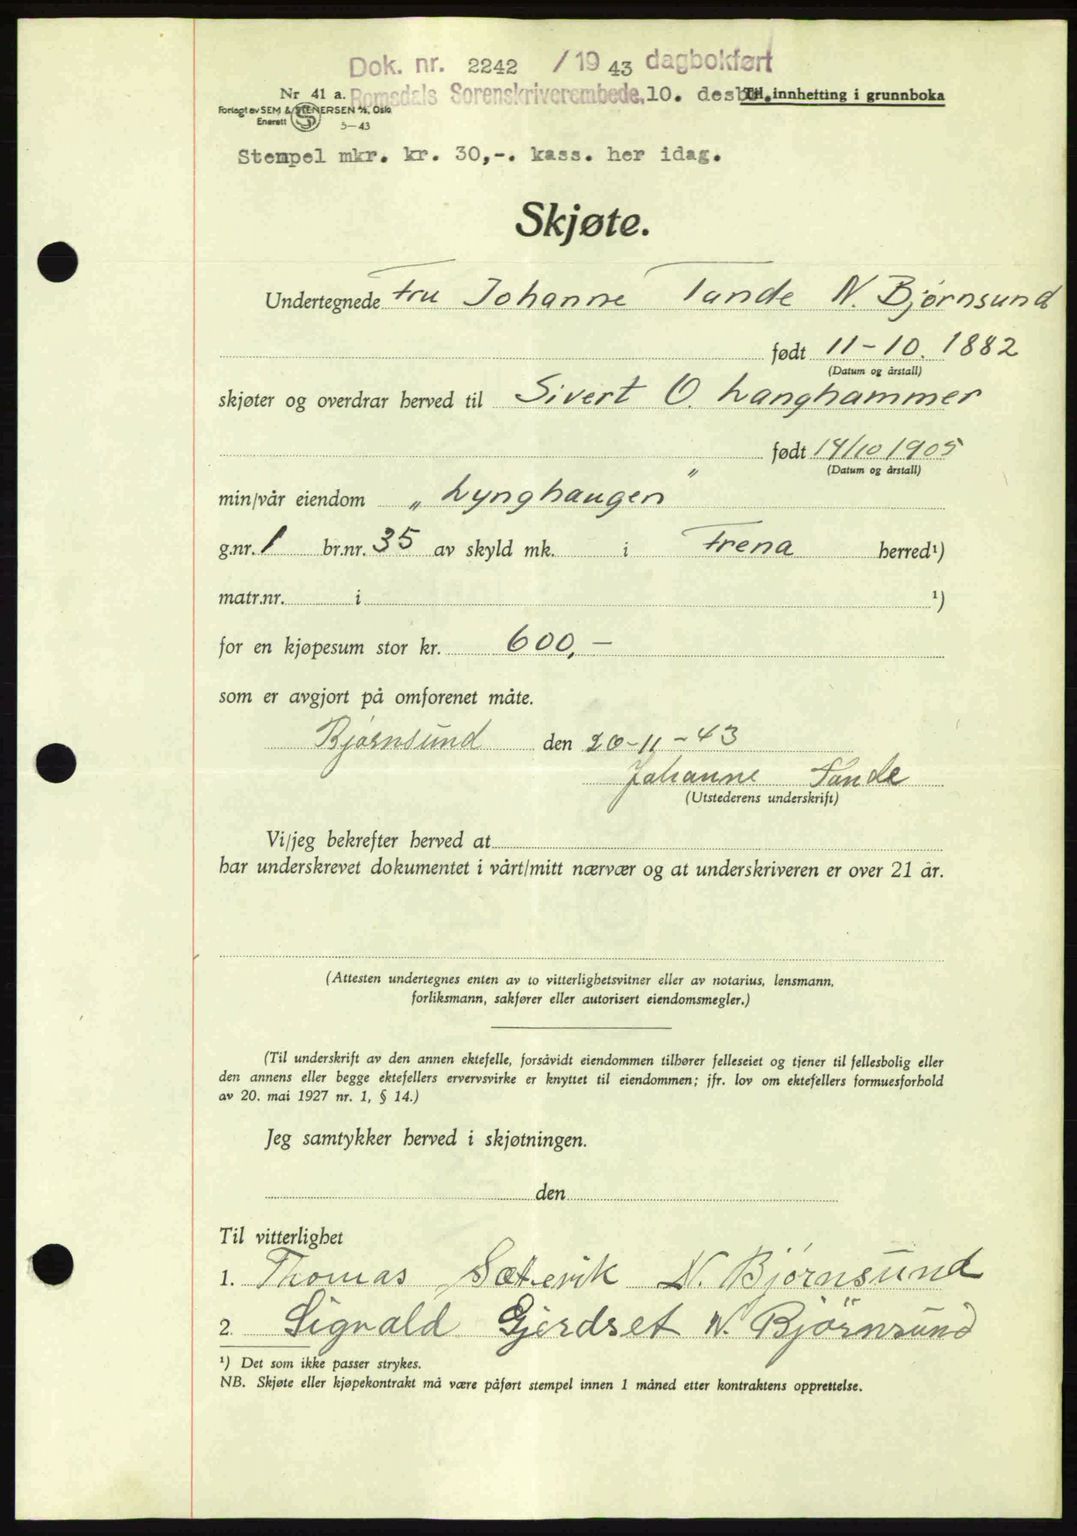 Dok. nr. 2242 / 19 43 dagbokført
Nr 41 a. Romsdals Sorenskriverembede, 10. desbr. Til innhefting i grunnboka
Forlagt av SEM & STENERSEN A/S, Oslo
Enerett 5—43
Stempel mkr. kr. 30,-. kass. her idag.
Skjøte.
Undertegnede Fru Johanne Tande N. Bjørnsund
født 11-10. 1882
(Datum og årstall)
skjøter og overdrar herved til Sivert O. Langhammer
født 14/10 1905
(Datum og årstall)
min/vår eiendom „Lynghaugen"
g.nr. 1 br.nr. 35 av skyld mk. i Frena herred¹)
matr.nr. i ¹)
for en kjøpesum stor kr. 600,-
som er avgjort på omforenet måte.
Bjørnsund den 20-11-43
Johanne Tande
(Utstederens underskrift)
Vi/jeg bekrefter herved at
har underskrevet dokumentet i vårt/mitt nærvær og at underskriveren er over 21 år.
(Attesten undertegnes enten av to vitterlighetsvitner eller av notarius, lensmann,
forliksmann, sakfører eller autorisert eiendomsmegler.)
(Til underskrift av den annen ektefelle, forsåvidt eiendommen tilhører felleseiet og tjener til fellesbolig eller
den annens eller begge ektefellers ervervsvirke er knyttet til eiendommen; jfr. lov om ektefellers formuesforhold
av 20. mai 1927 nr. 1, § 14.)
Jeg samtykker herved i skjøtningen.
den
Til vitterlighet
1. Thomas Sætervik N. Bjørnsund
2. Sigvald Gjerdset N. Bjørnsund
¹) Det som ikke passer strykes.
NB. Skjøte eller kjøpekontrakt må være påført stempel innen 1 måned etter kontraktens opprettelse.